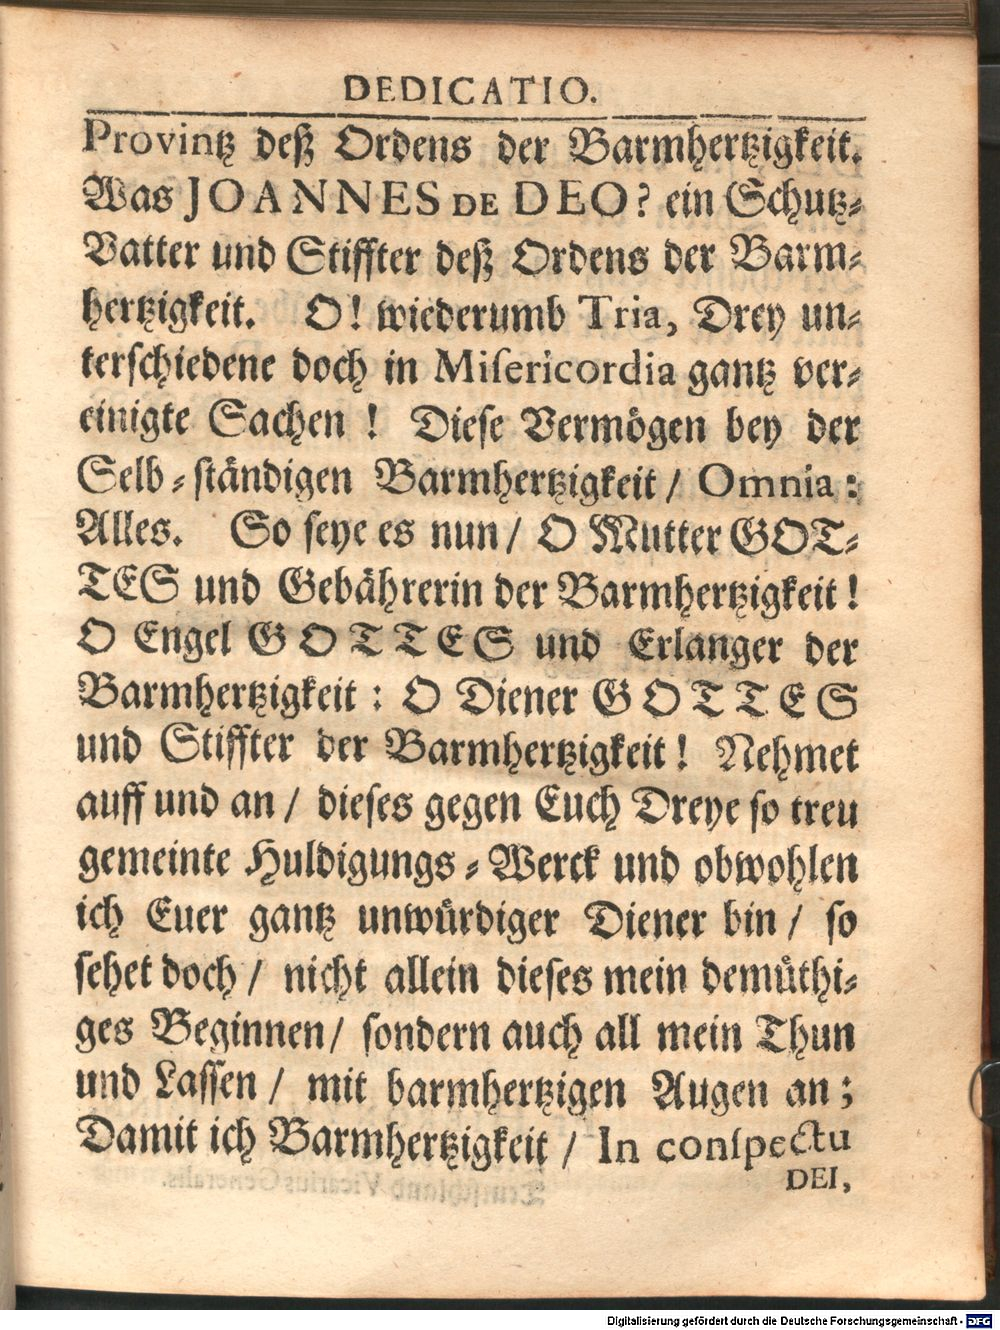 DEDICATIO.
Provintz deß Ordens der Barmhertzigkeit.
Was JOANNES DE DEO? ein Schutz-
Vatter und Stiffter deß Ordens der Barm-
hertzigkeit. O! wiederumb Tria, Drey un-
terschiedene doch in Miſericordia gantz ver-
einigte Sachen! Dieſe Vermögen bey der
Selb-ſtändigen Barmhertzigkeit / Omnia:
Alles. So ſeye es nun / O Mutter GOT-
TES und Gebährerin der Barmhertzigkeit!
O Engel GOTTES und Erlanger der
Barmhertzigkeit: O Diener GOTTES
und Stiffter der Barmhertzigkeit! Nehmet
auff und an / dieſes gegen Euch Dreye ſo treu
gemeinte Huldigungs-Werck und obwohlen
ich Euer gantz unwürdiger Diener bin / ſo
ſehet doch / nicht allein dieſes mein demüthi-
ges Beginnen / ſondern auch all mein Thun
und Laſſen / mit barmhertzigen Augen an;
Damit ich Barmhertzigkeit / In conſpectu
DEI,
Digitalisierung gefördert durch die Deutsche Forschungsgemeinschaft - DFG